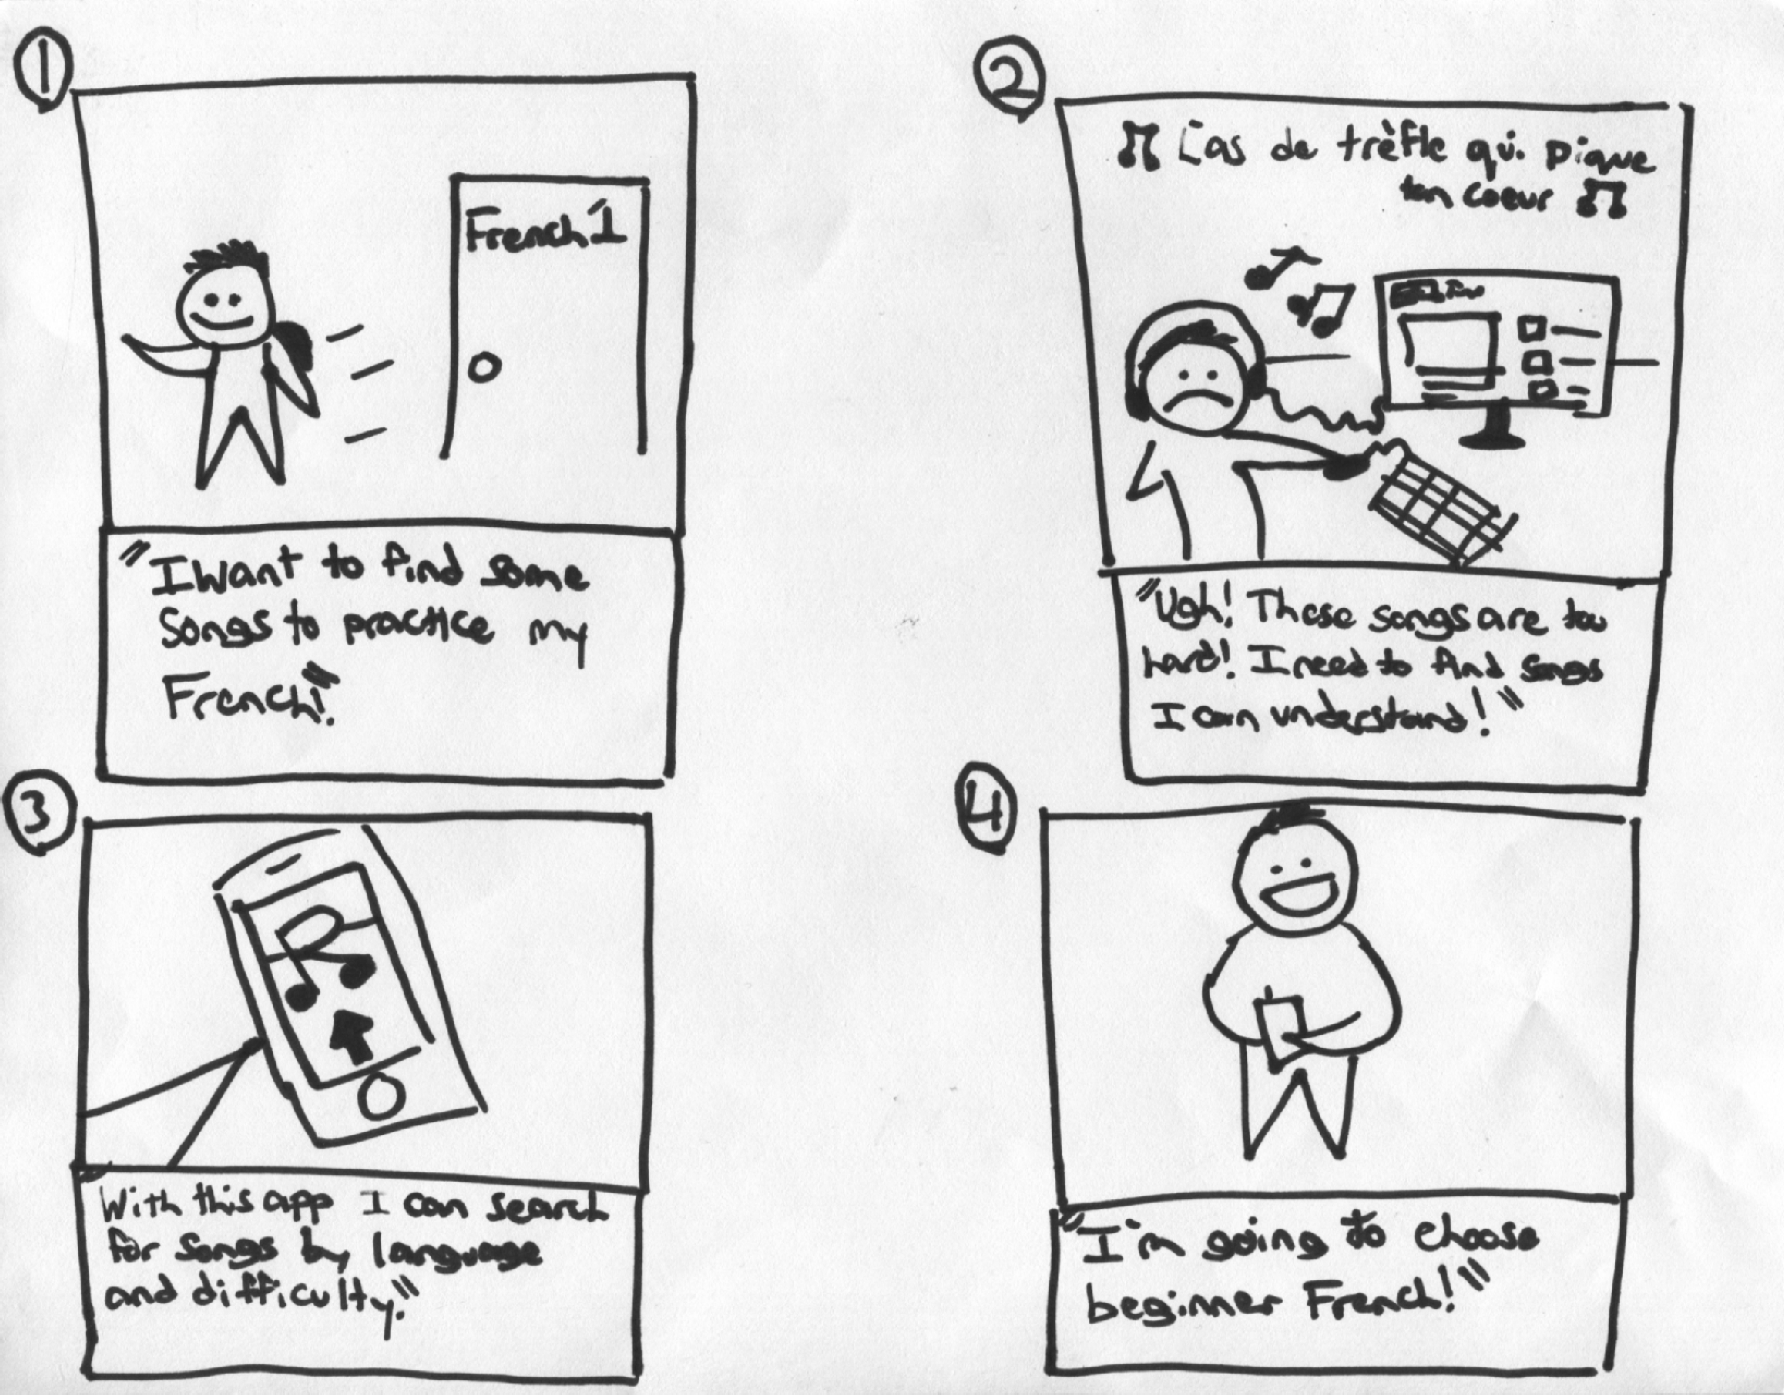 1
French 1
"I want to find some
songs to practice my
French!"
2
♫ L'as de trèfle qui pique
ton coeur ♫
"Ugh! These songs are too
hard! I need to find songs
I can understand!"
3
"With this app I can search
for songs by language
and difficulty."
4
"I'm going to choose
beginner French!"